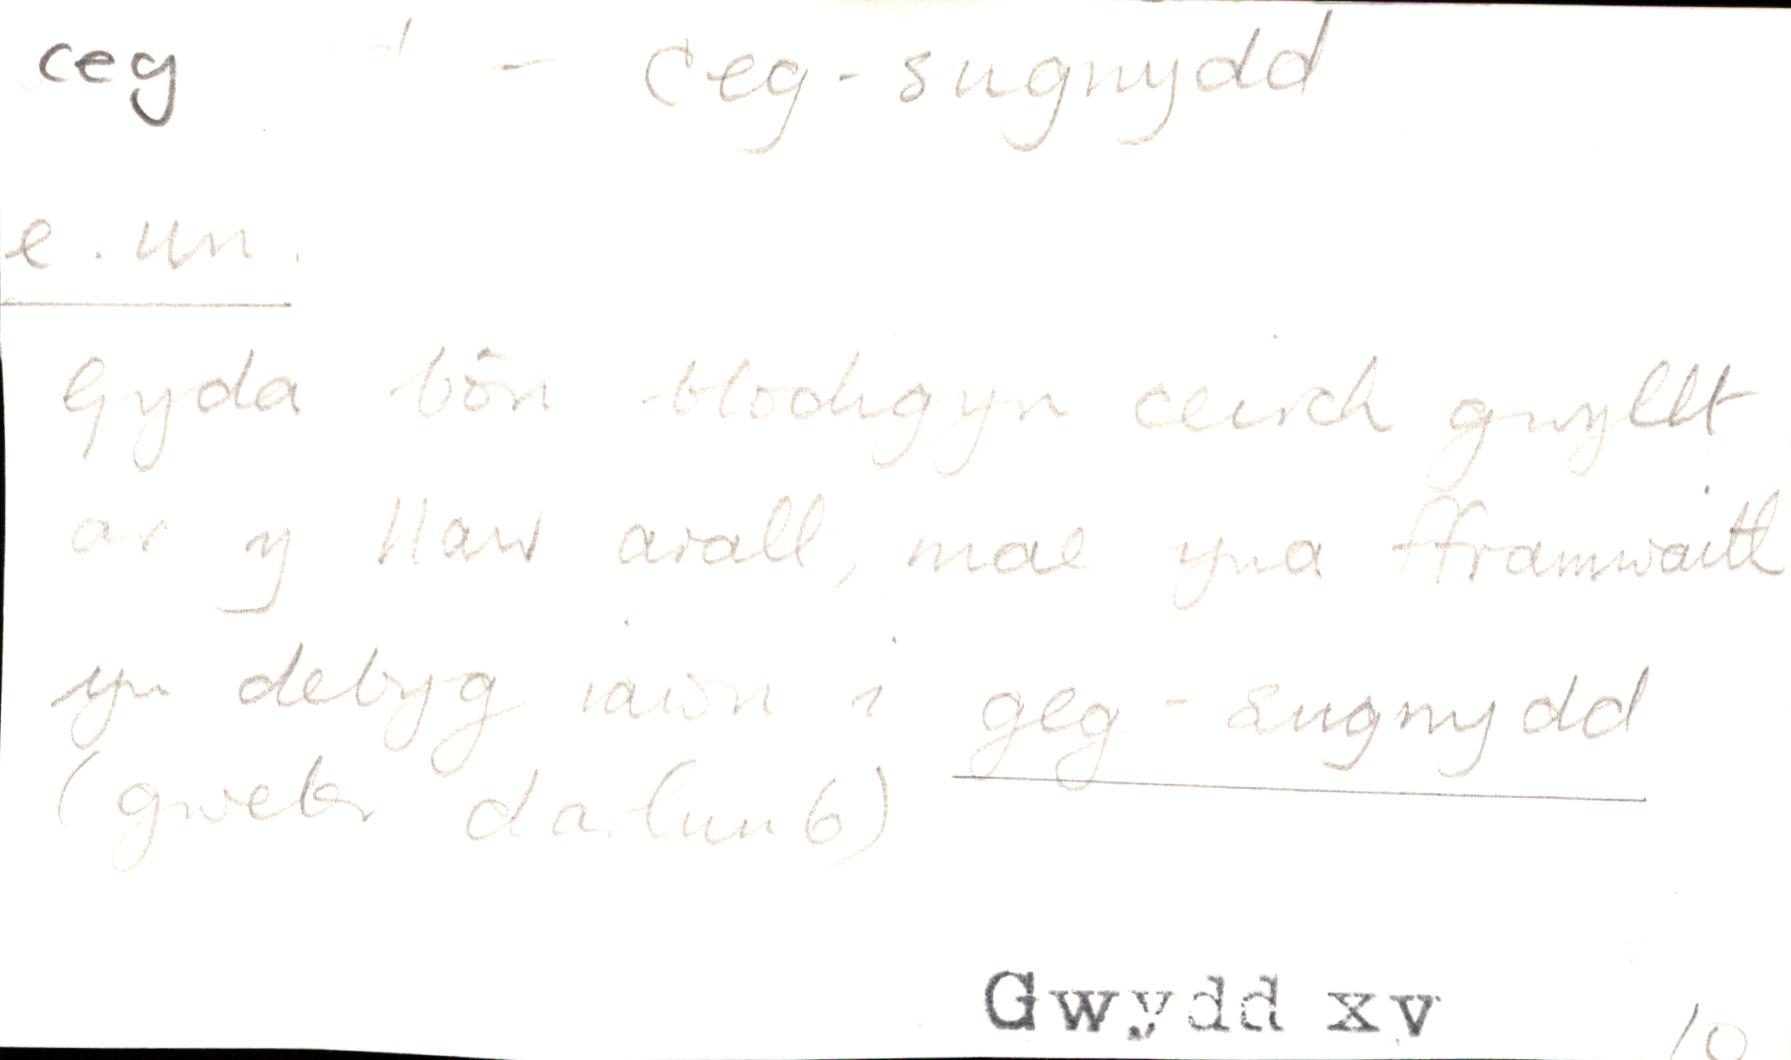 ceg - ceg-sugnydd
e. un.
Gyda bôn blodigyn ceirch gwyllt
ar y llaw arall, mae yna fframwaith
yn debyg iawn i geg-sugnydd
(gweler darlun 6)
Gwydd xv 10